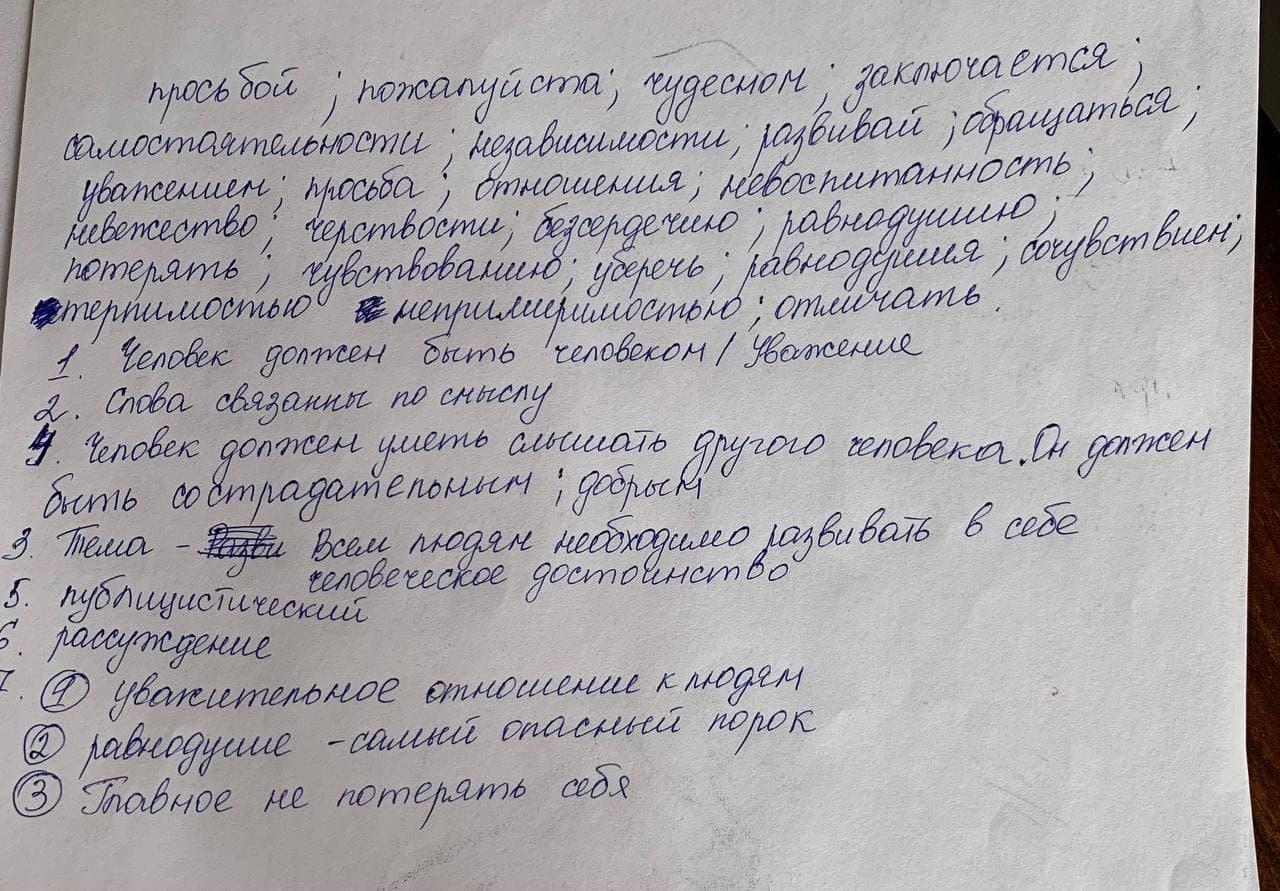 просьбой ; пожалуйста; чудесном ; заключается ;
самостоятельности ; независимости ; развивай ; обращаться ;
уважением ; просьба ; отношения ; невоспитанность ;
невежество ; черствости ; безсердечию ; равнодушию ;
потерять ; чувствованию ; уберечь ; равнодушия ; сочувствием ;
терпимостью непримиримостью ; отличать .
1. Человек должен быть человеком / Уважение
2. Слова связанны по смыслу
4. Человек должен уметь слышать другого человека. Он должен
быть сострадательным ; добрым
3. Тема - Всем людям необходимо развивать в себе
человеческое достоинство
5. публицистический
6. рассуждение
7. ① уважительное отношение к людям
② равнодушие - самый опасный порок
③ Главное не потерять себя